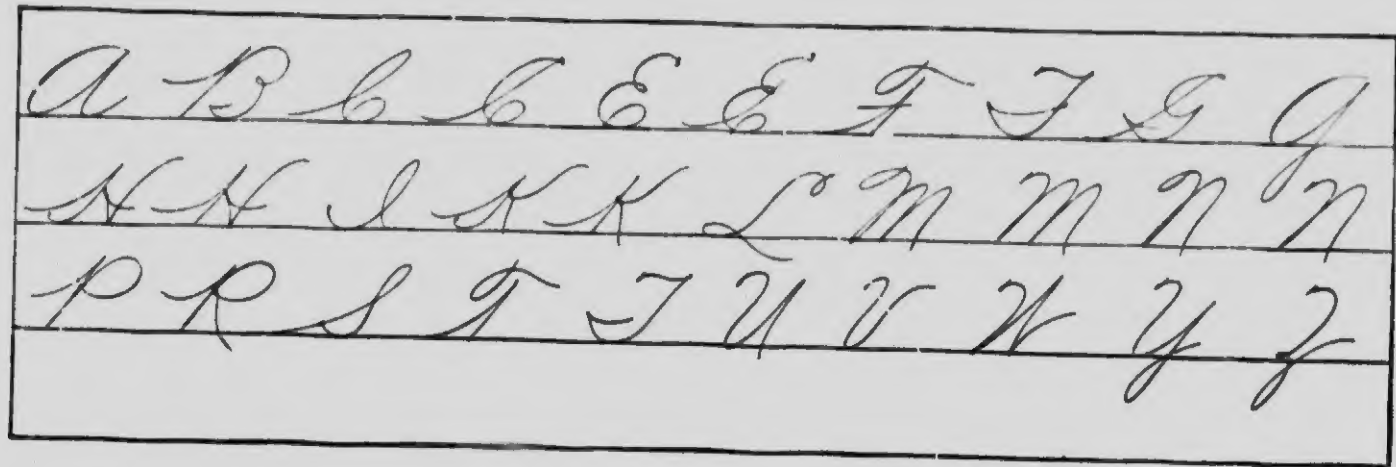 A B C C E E F F G G
H H I K K L M M N N
P R S T T U V W Y Z